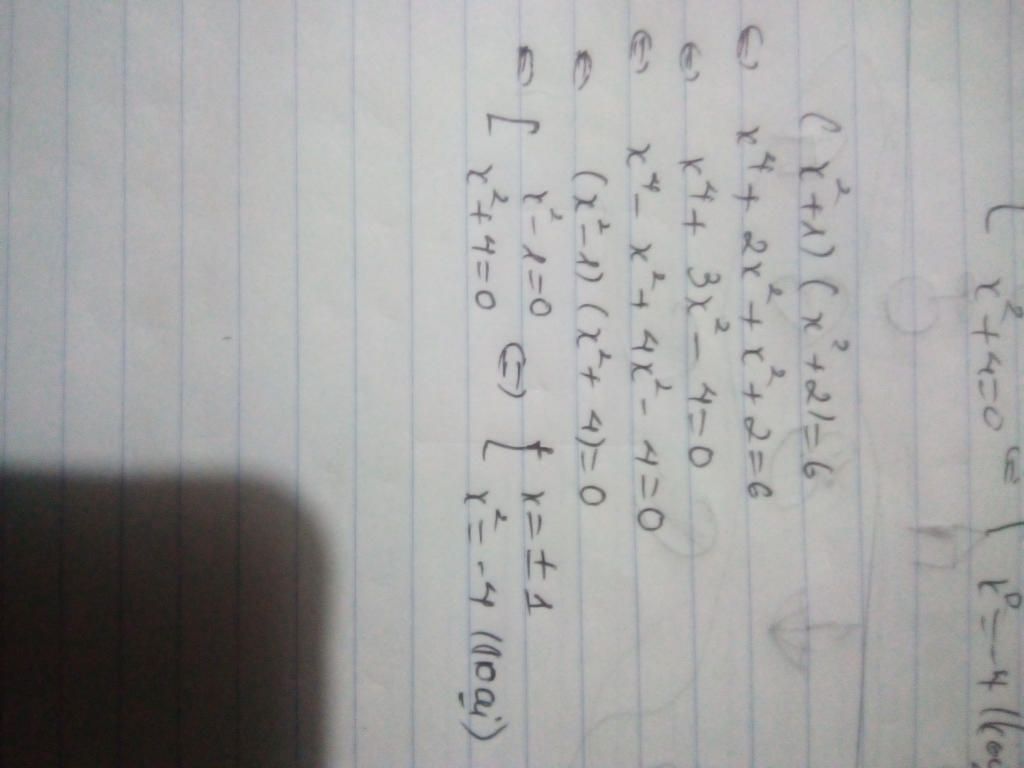 [ x² + 4 = 0 ⇔ [ x² = -4 (loại
(x² + 1) (x² + 2) = 6
⇔ x⁴ + 2x² + x² + 2 = 6
⇔ x⁴ + 3x² - 4 = 0
⇔ x⁴ - x² + 4x² - 4 = 0
⇔ (x² - 1) (x² + 4) = 0
⇔ [ x² - 1 = 0 ⇔ [ x = ± 1
x² + 4 = 0 x² = -4 (loại)